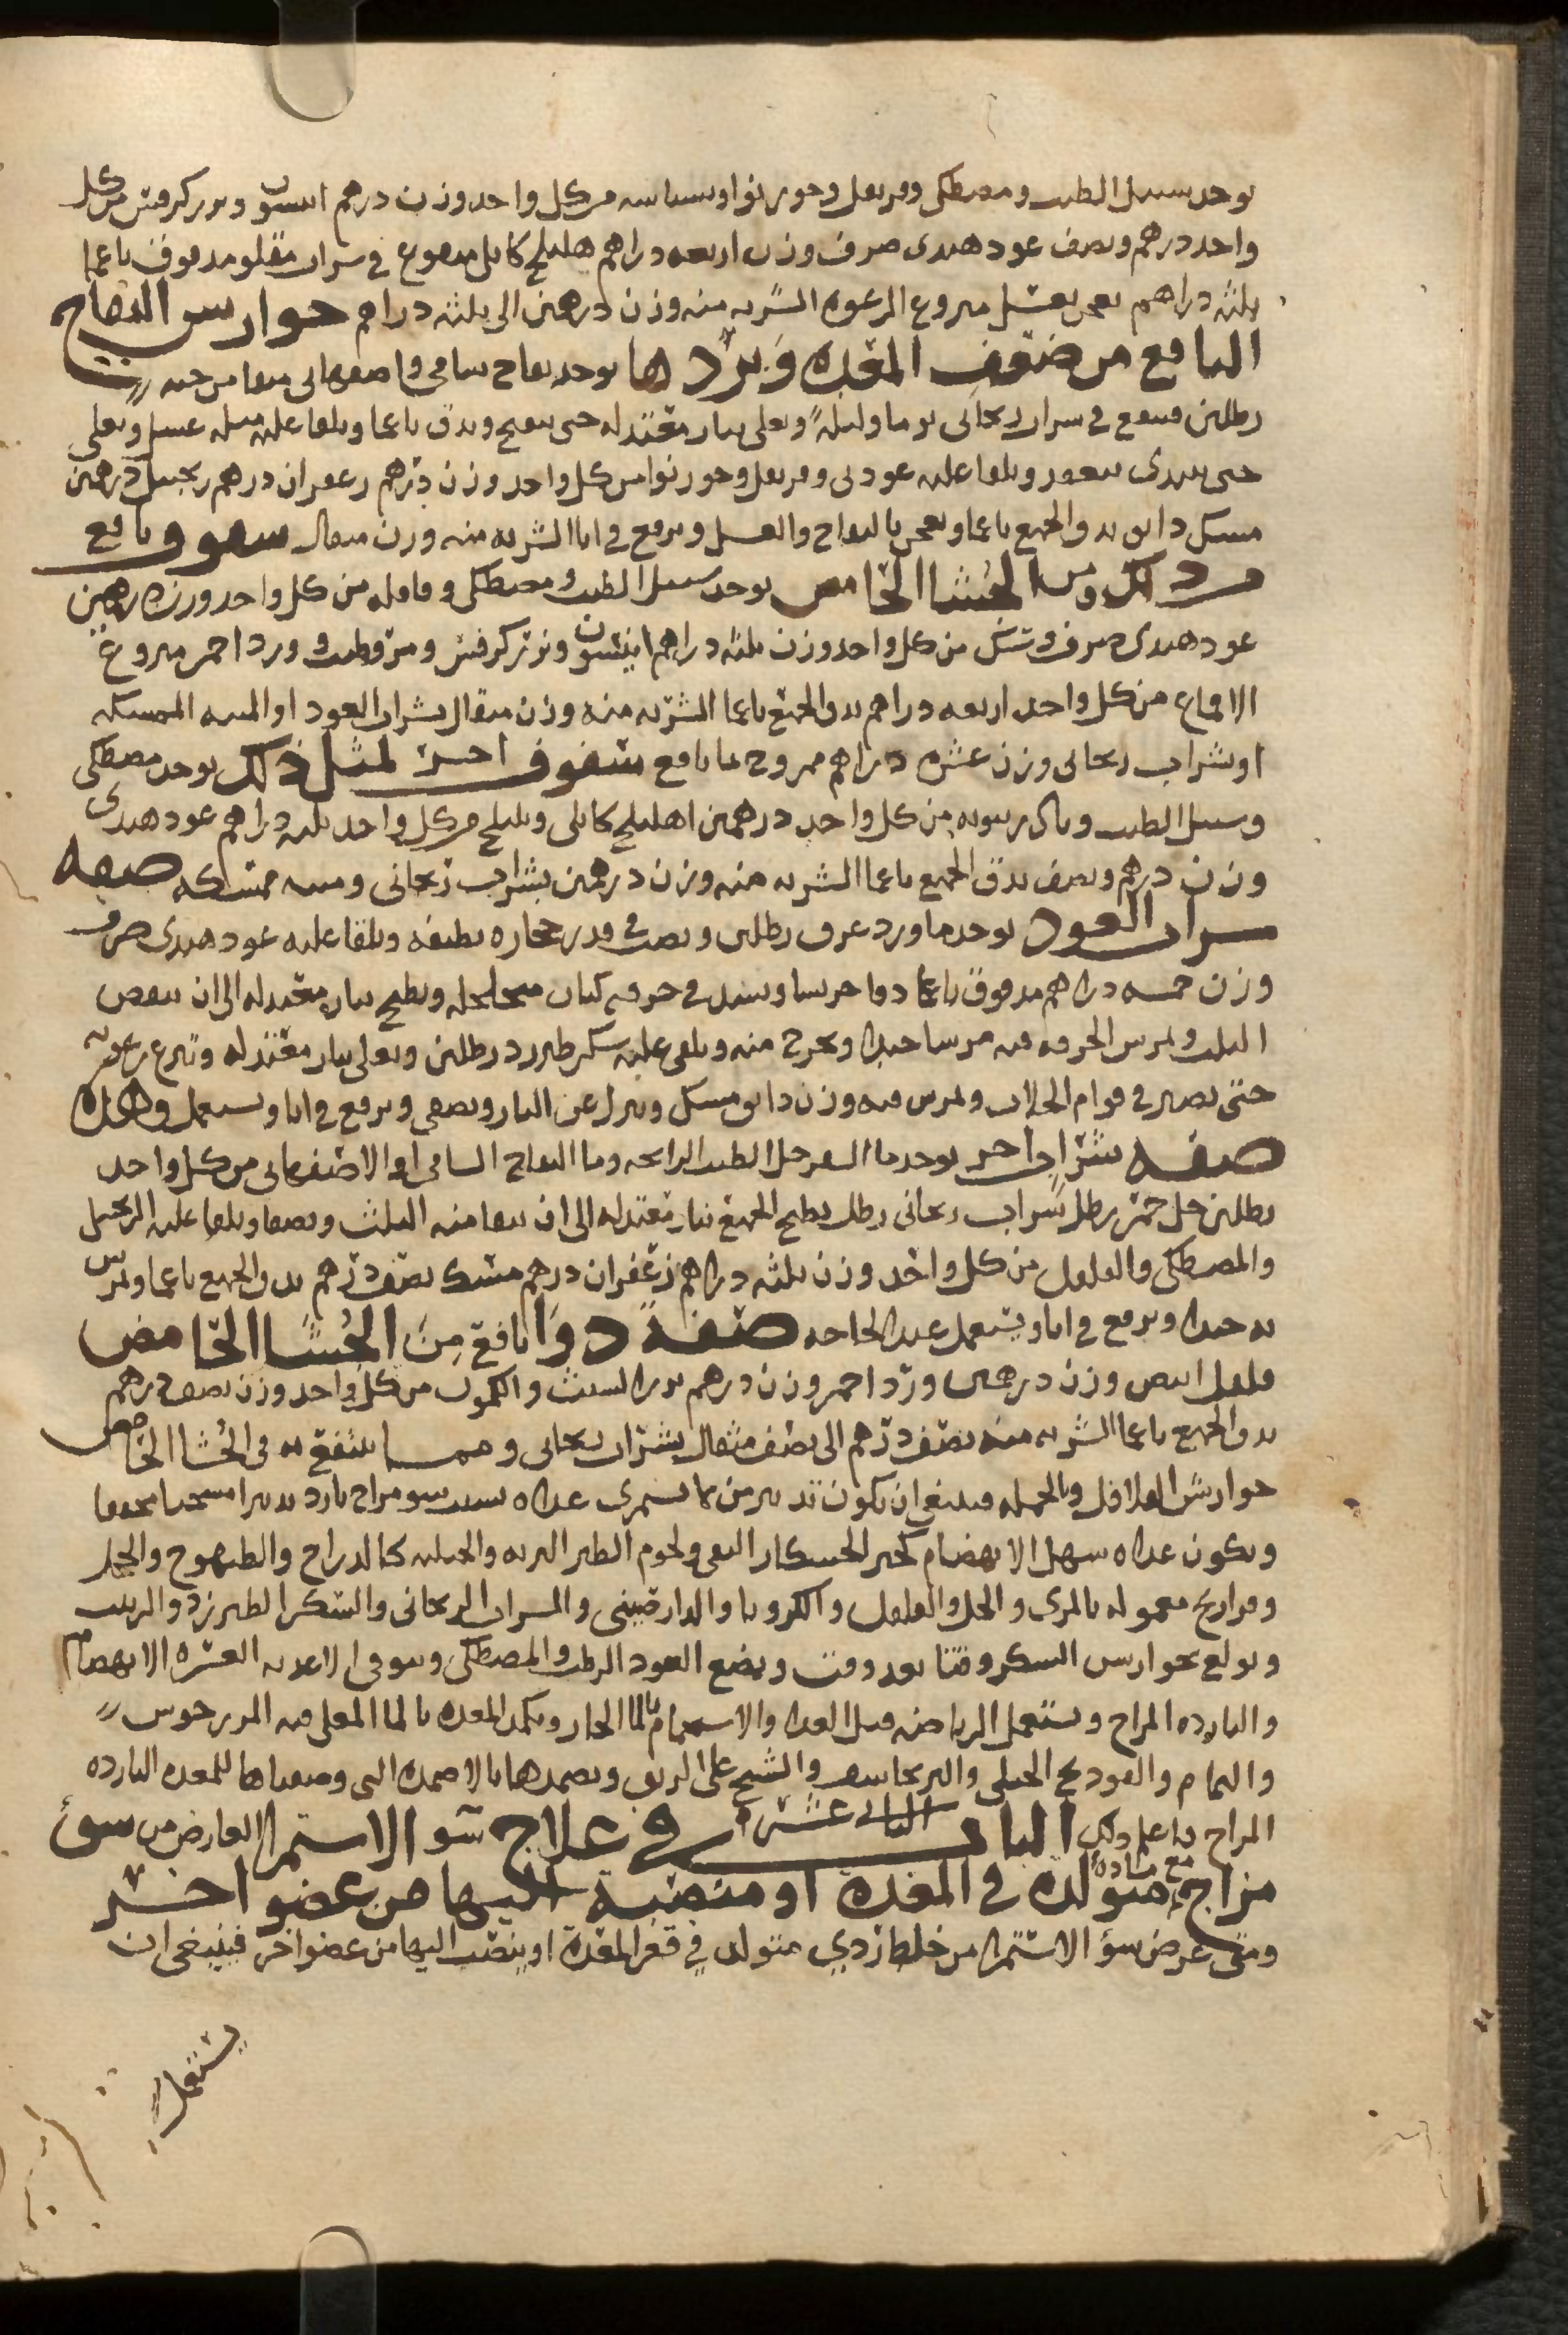 يوخد سنبل الطيب ومصطكى وقرنفل وجوزبوا وبسباسه من كل واحد وزن درهم انيسون وبزر كرفس من كل
واحد درهم ونصف عود هندى صرف وزن اربعه دراهم هليلج كابلى منقوع فى شراب مقلو مدقوق ناعما
ثلثه دراهم يعجن بعسل منزوع الرغوه الشربه منه وزن درهمين الى ثلثه دراهم جوارس التفاح
النافع من ضعف المعده وبردها يوخد تفاح شامى واصفهانى منقا من حبه
رطلين فينقع فى شراب ريحانى يوما وليلةً ويغلى بنار معتدله حتى ينضج ويدق ناعما ويلقا عليه مثله عسل ويغلى
حتى يبتدى ينعقد ويلقا عليه عود نى وقرنفل وجوزبوا من كل واحد وزن درهم زعفران درهم زنجبيل درهمين
مسك دانق يدق الجميع ناعما ويعجن بالتفاح والعسل ويرفع فى انا الشربه منه وزن مثقال سفوف نافع
من ذلك ومن الجُشا الحامض يوخد سنبل الطيب ومصطكى وقاقله من كل واحد وزن درهمين
عود هندى صرف وسُك من كل واحد وزن ثلثه دراهم انيسون وبزر كرفس ومر وطيب وورد احمر منزوع
الاقماع من كل واحد اربعه دراهم يدق الجميع ناعما الشربه منه وزن مثقال بشراب العود او الميبه الممسكه
او شراب ريحانى وزن عشره دراهم ممزوج بما نافع سفوف اخر لمثل ذلك يوخد مصطكى
وسنبل الطيب من كل واحد درهمين اهليلج كابلى وبليلج من كل واحد ثلثه دراهم عود هندى
وزن درهم ونصف يدق الجميع ناعما الشربه منه وزن درهمين بشراب ريحانى وميبه ممسكه صفه
شراب العود يوخد ماورد عرق رطلين ويصب فى قدر حجاره نظيفه ويلقا عليه عود هندى صرف
وزن خمسه دراهم مدقوق ناعما دقا جريشا ويشد فى خرقه كتان متخلخله ويطبخ بنار معتدله الى ان ينقص
الثلث ويمرس الخرقه فيه مرسا جيدا ويخرج منه ويلقى عليه سكر طبرزد رطلين ويغلى بنار معتدله وتنزع رغوته
حتى يصير فى قوام الجلاب ويمرس فيه وزن دانق مسك وينزل عن النار ويصفى ويرفع فى انا ويستعمل وهذه
صفه شراب اخر يوخد ما السفرجل الطيب الرايحه وما التفاح الشامى او الاصفهانى من كل واحد
رطلين خل خمر رطل شراب ريحانى رطل يطبخ الجميع بنار معتدله الى ان يبقا منه الثلث ويصفا ويلقا عليه الزنجبيل
والمصطكى والفلفل من كل واحد وزن ثلثه دراهم زعفران درهم مسك نصف درهم يدق الجميع ناعما ويمرس
به جيدا ويرفع فى انا ويستعمل عند الحاجه صفة دوا نافع مِن الجُشا الحامض
فلفل ابيض وزن درهمين ورد احمر وزن درهم بزر الشبث والكمون من كل واحد وزن نصف درهم
يدق الجميع ناعما الشربه منه نصف درهم الى نصف مثقال بشراب ريحانى ومما ينتفع به فى الجُشا الحامض
جوارش الفلافل وبالجمله فينبغى ان يكون تدبير من لا يستمرى غداه بسبب سو مزاج بارد تدبيرا مسخنا مجففا
ويكون غداه سهل الانهضام كخبز الخشكار النقى ولحوم الطير البريه والجبليه كالدراج والطيهوج والحجل
وفراريج معموله بالمرى والخل والفلفل والكرويا والدارصينى والشراب الريحانى والسكر الطبرزد والزبيب
ويولع بجوارس السكر وقتا بعد وقت ويمضغ العود الرطب والمصطكى ويتوقى الاغديه العسره الانهضام
والبارده المزاج ويستعمل الرياضه قبل الغدا والاستحمام بالما الحار ويكمد المعده بالما المغلى فيه المرزنجوس
والنمام والفودنج الجبلى والبرنجاسف والشيح على الريق ويضمدها بالاضمده التى وصفناها للمعده البارده
المزاج فاعلم ذلك الباب الثانى عشر فى علاج سو الاستمرا العارض من سوء
مزاج مع مادة متولده فى المعدة او منصبة اليها من عضو اخر
ومتى عرض سوء الاستمرا من خلط ردي متولد في قعر المعدة او ينصب اليها من عضو اخر فينبغى ان
يستعمل